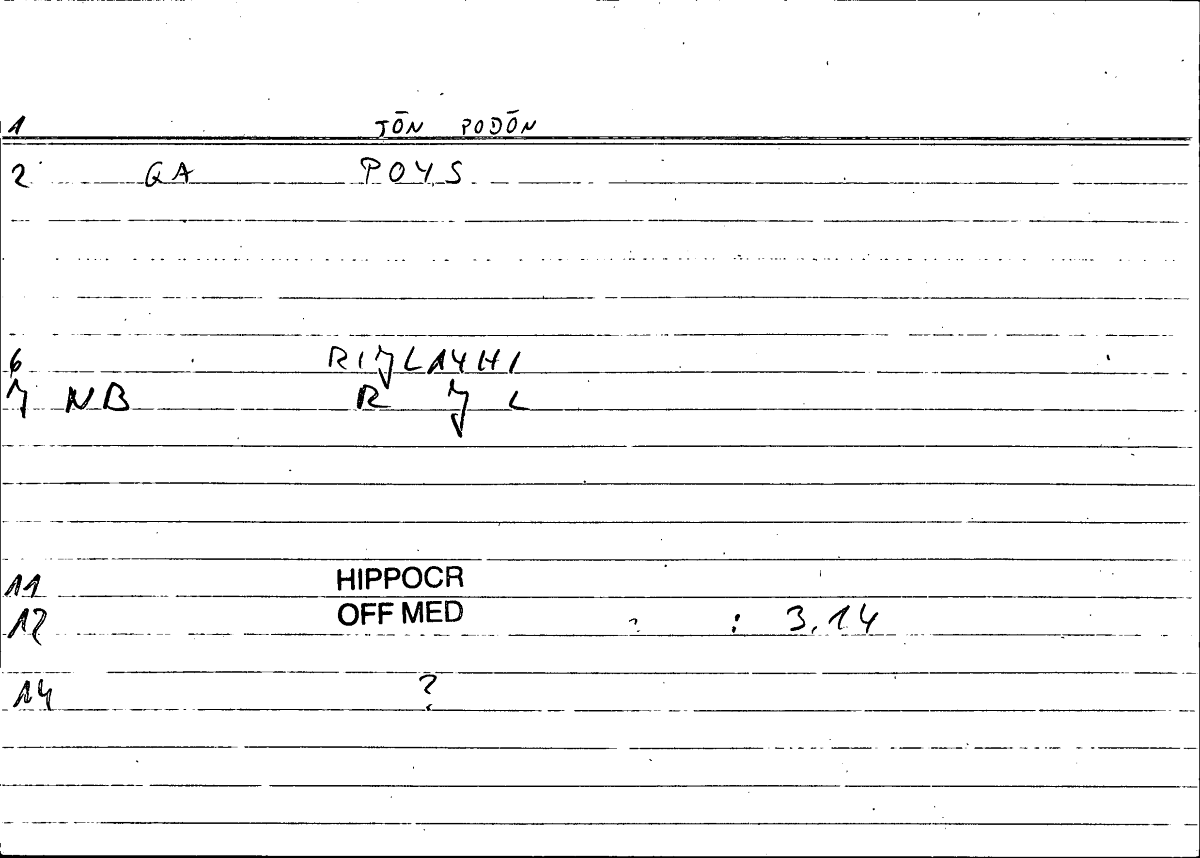 1 TŌN PODŌN
2 GA POYS
6
7 NB R L
11 HIPPOCR
12 OFF MED : 3.14
14 ?